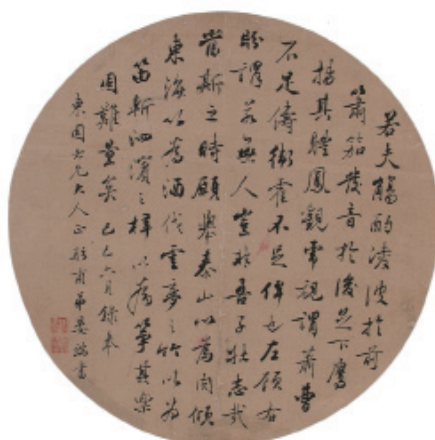 若夫觴酌凌波於前
簫笳發音於後足下鷹
揚其體鳳觀虎視謂蕭曹
不足儔衛霍不足侔也左顧右
盼謂若無人豈非吾子壯志哉
當斯之時願舉泰山以為肉傾
東海以為酒伐雲夢之竹以為
笛斬泗濱之梓以為箏其樂
固難量矣 己巳六月錄奉
東園大兄大人正 弟書